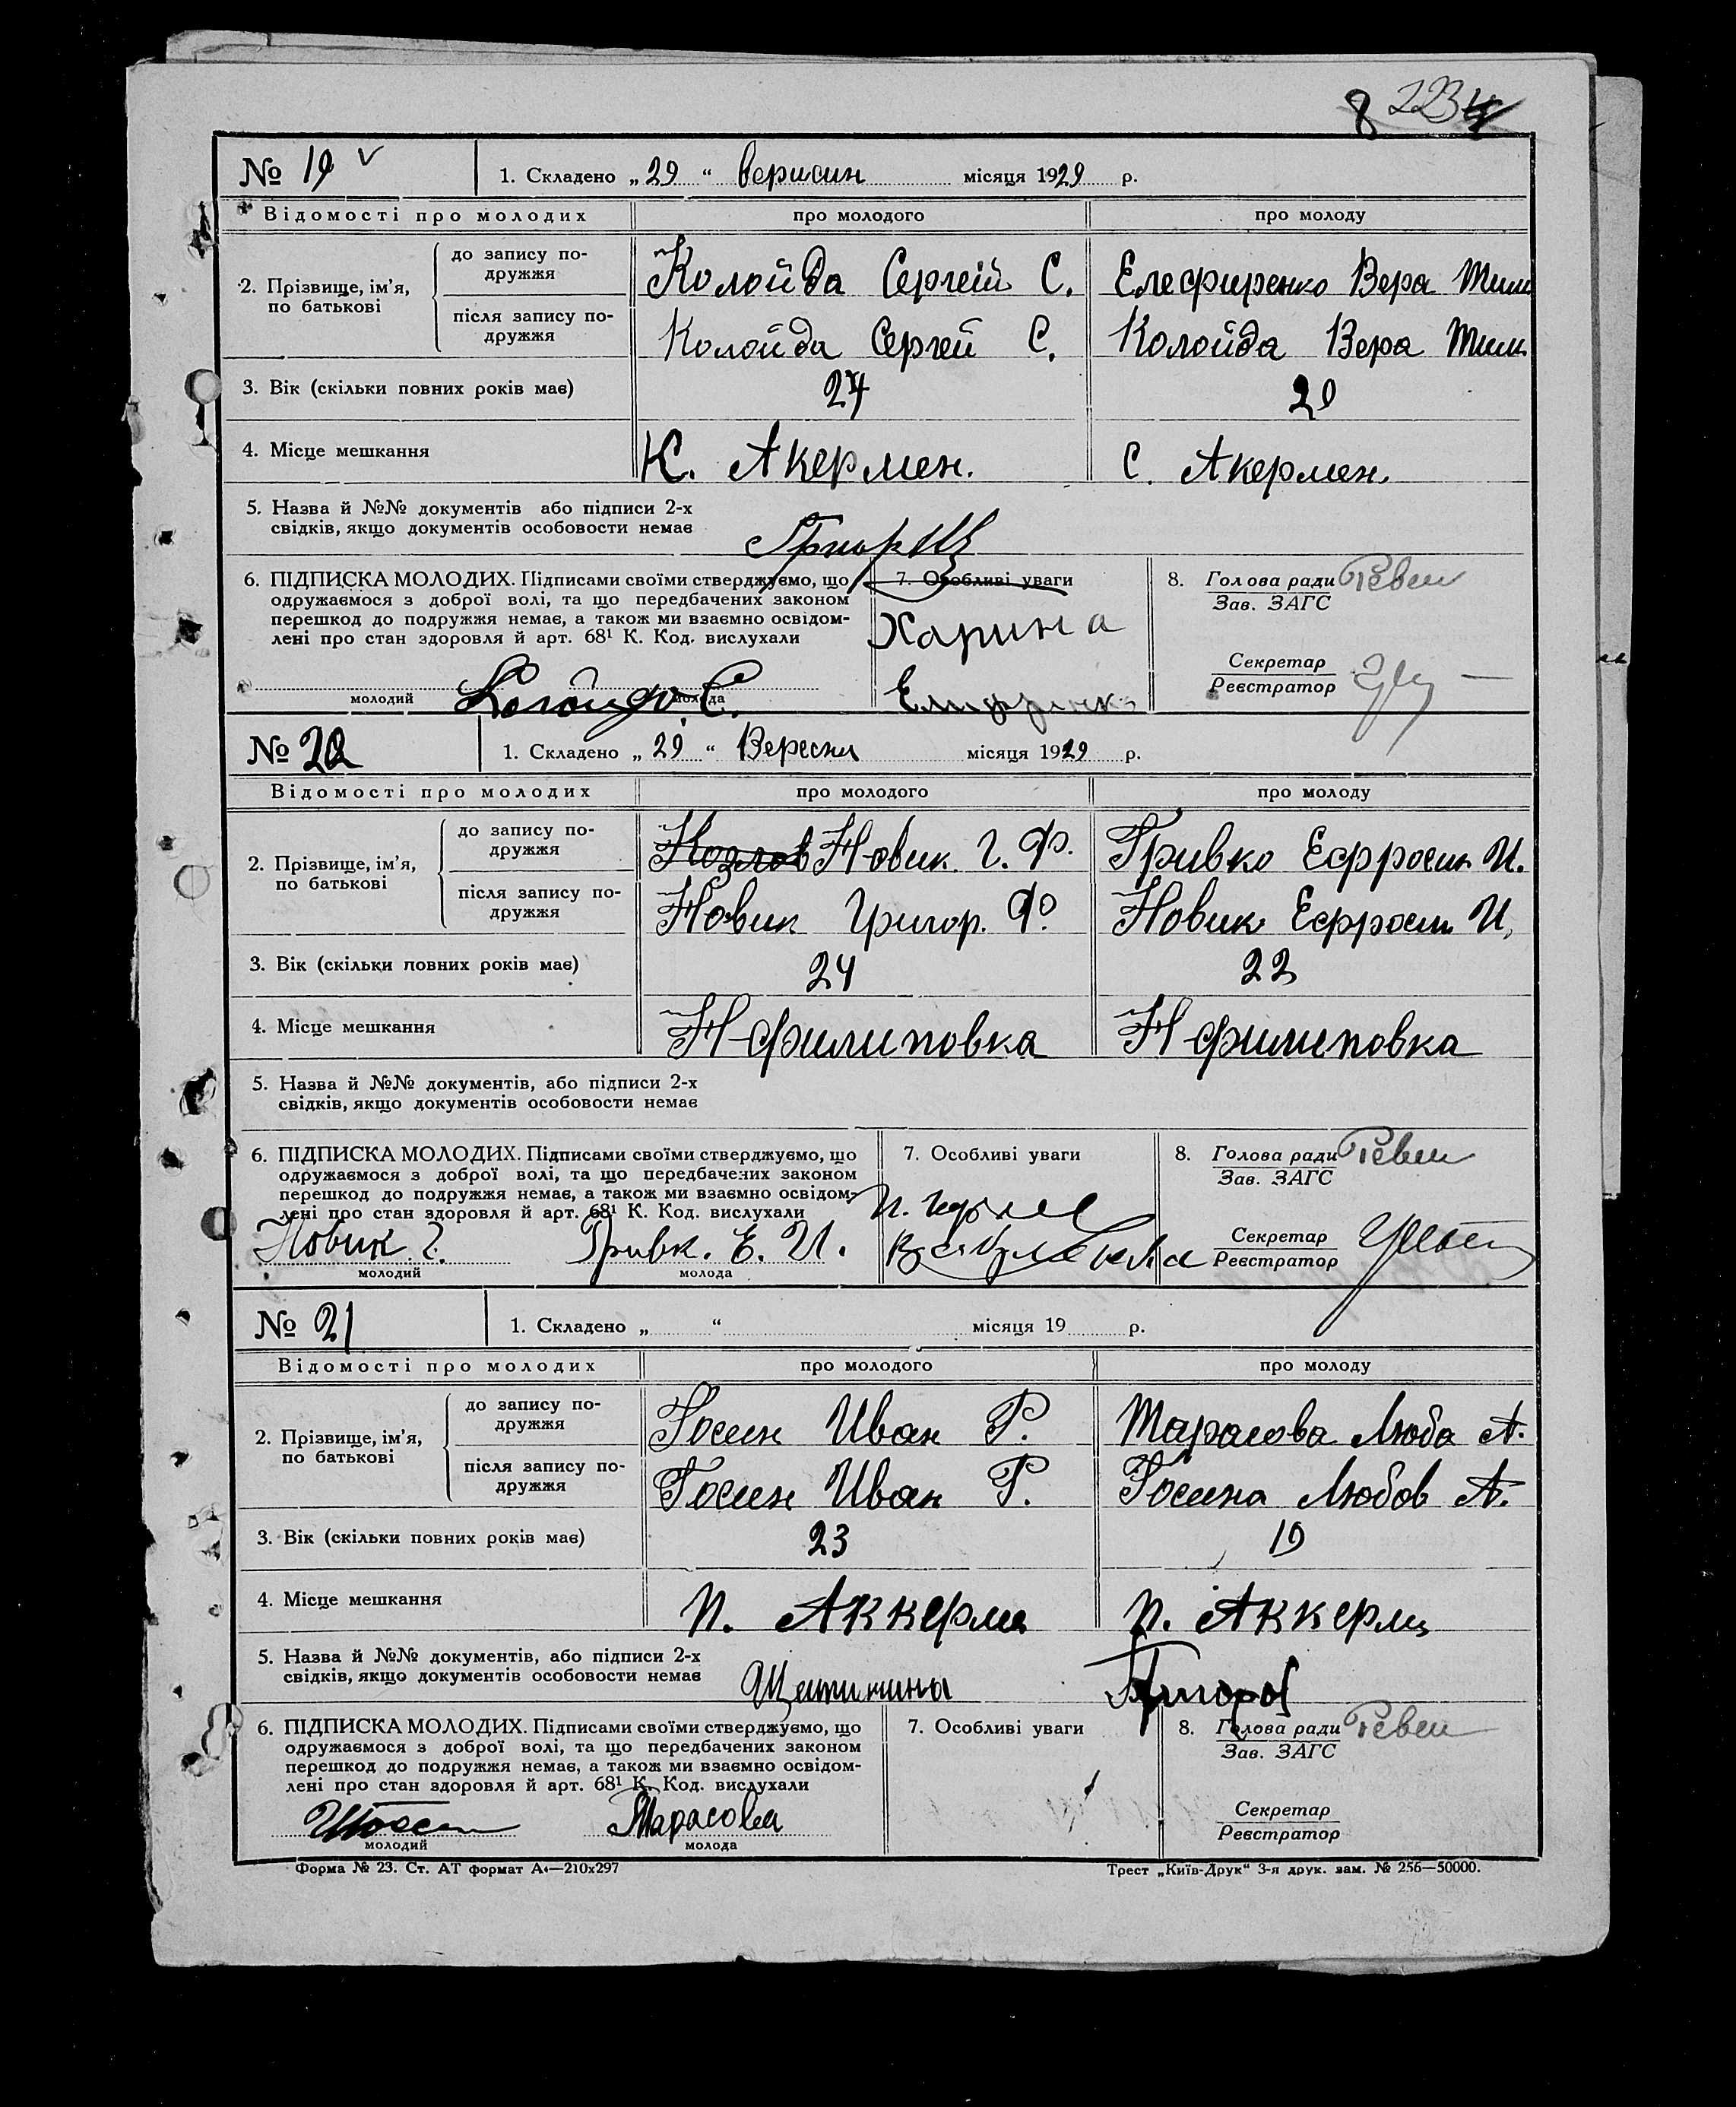 8 223
№ 19 v 1. Складено „29“ верисин місяця 1929 р.
Відомості про молодих про молодого про молоду
2. Прізвище, ім’я, по батькові
до запису подружжя Колойда Сергеій С. Елефиренко Вера Тим
після запису подружжя Колойда Сергей С. Колойда Вера Тим
3. Вік (скільки повних років має) 24 20
4. Місце мешкання К. Акермен. С. Акермен.
5. Назва й №№ документів або підписи 2-х
свідків, якщо документів особовости немає
6. ПІДПИСКА МОЛОДИХ. Підписами своїми стверджуємо, що
одружаємося з доброї волі, та що передбачених законом
перешкод до подружжя немає, а також ми взаємно освідом-
лені про стан здоровля й арт. 68¹ К. Код. вислухали
молодий молода
7. Особливі уваги
Харина
8. Голова ради Ревен
Зав. ЗАГС
Секретар
Реєстратор
№ 20 1. Складено „29“ Вересня місяця 1929 р.
Відомості про молодих про молодого про молоду
2. Прізвище, ім’я, по батькові
до запису подружжя Козлов Новик Г. Ф. Гривко Ефросин И.
після запису подружжя Новик Григор. Ф. Новик Ефросин И.
3. Вік (скільки повних років має) 24 22
4. Місце мешкання Н-Филиповка Н Филиповка
5. Назва й №№ документів, або підписи 2-х
свідків, якщо документів особовости немає
6. ПІДПИСКА МОЛОДИХ. Підписами своїми стверджуємо, що
одружаємося з доброї волі, та що передбачених законом
перешкод до подружжя немає, а також ми взаємно освідом-
лені про стан здоровля й арт. 68¹ К. Код. вислухали
Новик Г. Гривк. Е. И.
молодий молода
7. Особливі уваги
8. Голова ради Ревен
Зав. ЗАГС
Секретар
Реєстратор
№ 21 1. Складено „ “ місяця 19 р.
Відомості про молодих про молодого про молоду
2. Прізвище, ім’я, по батькові
до запису подружжя Госин Иван Р. Тарасова Люба А.
після запису подружжя Госин Иван Р. Госина Любов А.
3. Вік (скільки повних років має) 23 19
4. Місце мешкання п. Аккерме п. Аккерм
5. Назва й №№ документів, або підписи 2-х
свідків, якщо документів особовости немає Щетинины
6. ПІДПИСКА МОЛОДИХ. Підписами своїми стверджуємо, що
одружаємося з доброї волі, та що передбачених законом
перешкод до подружжя немає, а також ми взаємно освідом-
лені про стан здоровля й арт. 68¹ К. Код. вислухали
Тарасова
молодий молода
7. Особливі уваги
8. Голова ради Ревен
Зав. ЗАГС
Секретар
Реєстратор
Форма № 23. Ст. АТ формат А4—210х297 Трест „Київ-Друк“ 3-я друк. зам. № 256—50000.